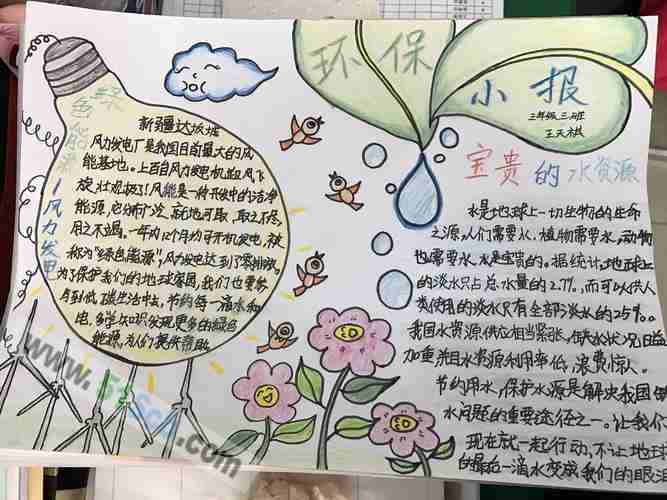 环保
小报
三年级三班
王天祺
绿色能源
风力发电
新疆达坂城
风力发电厂是我国目前最大的风
能基地。上百台风力发电机迎风飞
旋,壮观极了!风能是一种开发中的洁净
能源,它分布广泛,就地可取,取之不尽,
用之不竭,一年约12个月均可开机发电,被
称为“绿色能源”,风力发电达到了零排放。
为了保护我们的地球家园,我们也要参
与到低碳生活中去,节约每一滴水和
电,多学知识发现更多的绿色
能源,为人们提供帮助。
宝贵的水资源
水是地球上一切生物的生命
之源,人们需要水,植物需要水,动物
也需要水,水是宝贵的。据统计,地球上
的淡水只占总水量的2.7%,而可以供人
类使用的淡水只有全部淡水的25%。
我国水资源供应相当紧张,缺水状况日益
加重并且水资源利用率低,浪费惊人。
节约用水,保护水源是解决我国
水问题的重要途径之一。让我们
现在就一起行动,不让地球
的最后一滴水变成我们的眼泪